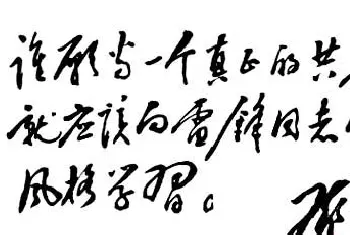 谁愿当一个真正的共
就应该向雷锋同志
风格学习。